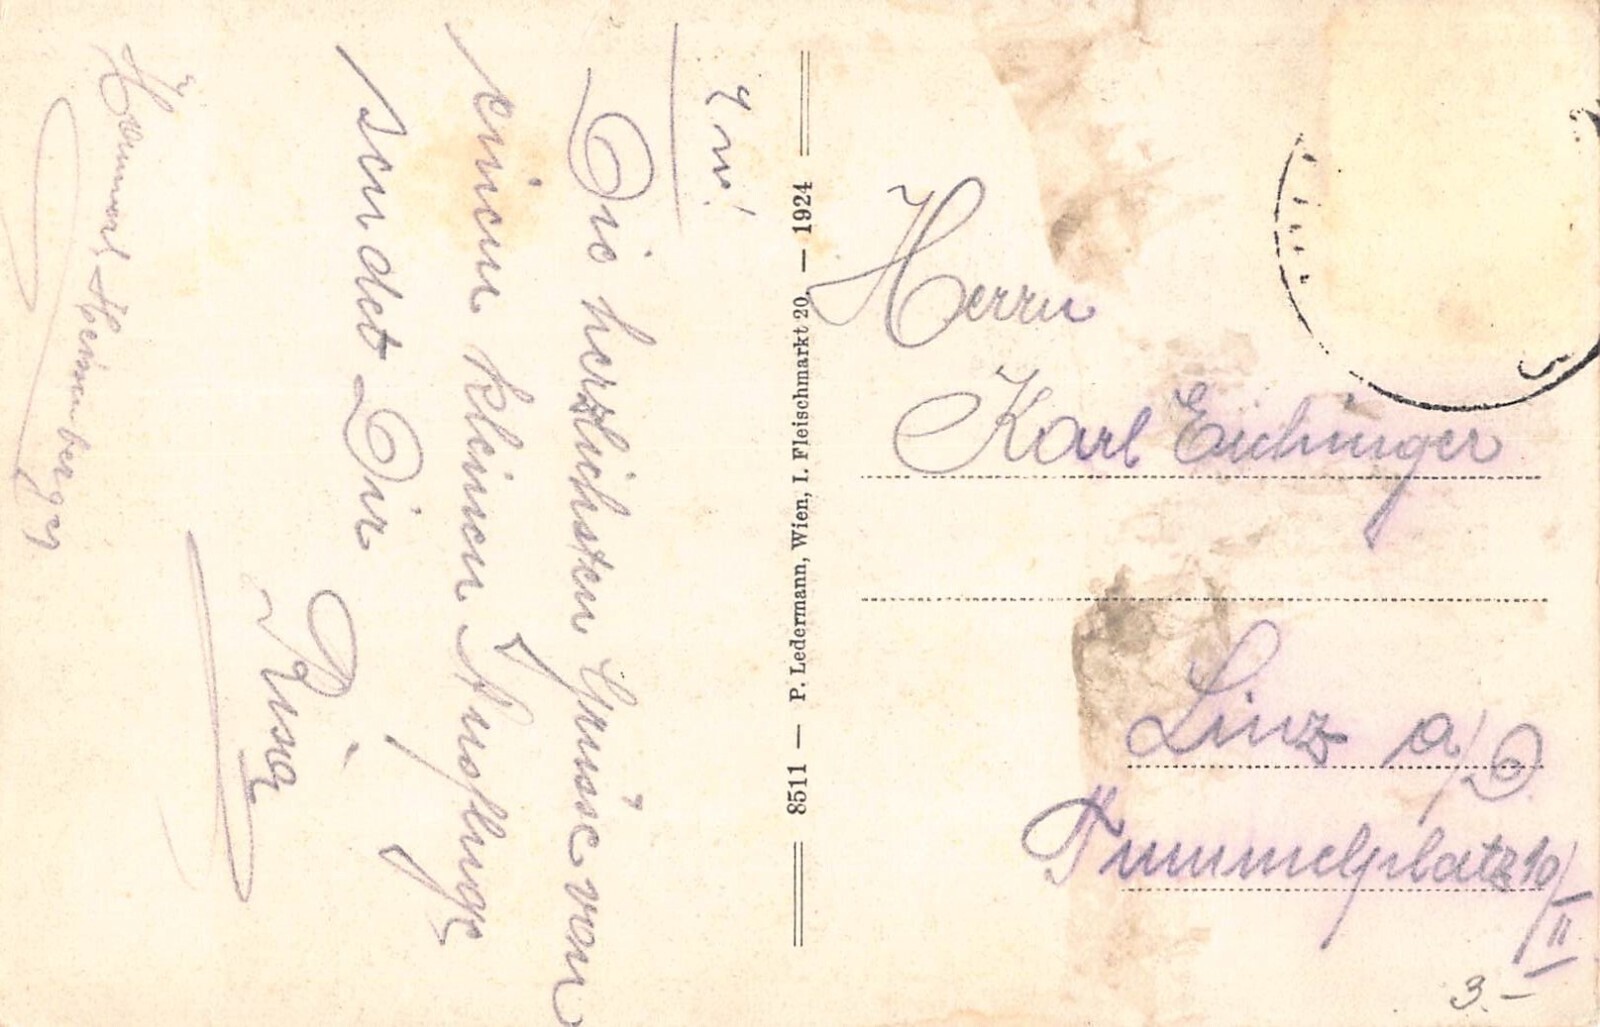 Die herzlichsten Grüsse von
einem kleinen Ausfluge
sendet Dir
Risa
Heimberger
8511 — P. Ledermann, Wien, I. Fleischmarkt 20. — 1924
Herrn
Karl Eichinger
Linz a/D
Tummelplatz 10/II
3.–